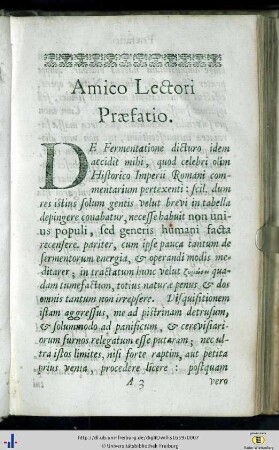 Amico Lectori
Præfatio.
DE Fermentatione dicturo idem
accidit mihi, quod celebri olim
Historico Imperii Romani com-
mentarium pertexenti: scil. dum
res istius solum gentis velut brevi in tabella
depingere conabatur, necesse habuit non uni-
us populi, sed generis humani facta
recensere. pariter, cum ipse pauca tantum de
fermentorum energia, & operandi modis me-
ditarer; in tractatum hunc velut qua-
dam tumefactum, totius naturæ penus, & dos
omnis tantum non irrepsere. Disquisitionem
istam aggressus, me ad pistrinam detrusum,
& solummodo ad panificum, & cerevisiari-
orum furnos relegatum esse putaram; nec ul-
tra istos limites, nisi forte raptim, aut petita
prius venia, procedere licere: postquam
A 3 vero
http://dl.ub.uni-freiburg.de/diglit/willis1659/0007
© Universitätsbibliothek Freiburg